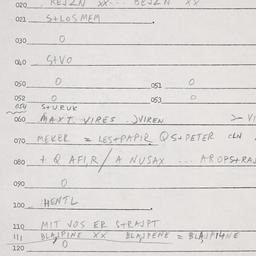 020 REJZN XX... BEJZN XX
021 S+LOSMEM
030 0
040 S+VO
050 0 051 0
052 0 053 0
054 S+URUK
060 MAXT VIRES JVIREN > VI
070 MEKER = LES+PAPIR QS+PETER CLN
080 + Q AFIR / A NUSAX ... AROPS+RAJ
090 0
100 HENTL
110 MIT JOS ER S+RAJPT
111 BLAJPINE XX BLAJPENE = BLAJPINE
120 0